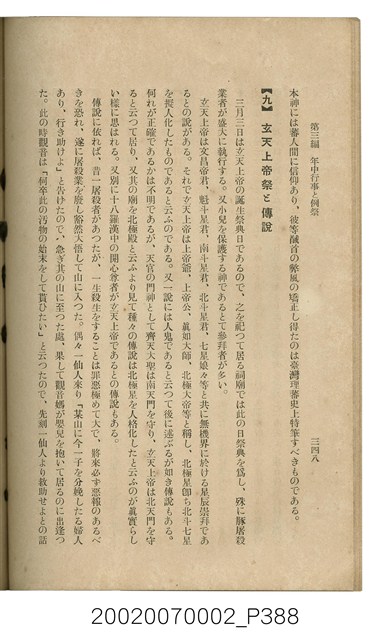 第三編　年中行事と例祭
三四八
本神には蕃人間に信仰あり、彼等馘首の弊風の矯正し得たのは臺灣理蕃史上特筆すべきものである。
【九】　玄天上帝祭と傳說
三月三日は玄天上帝の誕生祭典日であるので、之を祀つて居る祠廟では此の日祭典を爲し、殊に豚屠殺
業者が盛大に執行する。又小兒を保護する神であるとて參拜者が多い。
玄天上帝は文昌帝君、魁斗星君、南斗星君、北斗星君、七星娘々等と共に無機界に於ける星辰崇拜であ
るとの說がある。それで玄天上帝は上帝爺、上帝公、眞如大師、北極大帝等と稱し、北極星卽ち北斗七星
を擬人化したものであると云ふのである。又一說には人鬼であると云つて後に述ぶるが如き傳說もある。
何れが正確であるかは不明であるが、天官の門神として齊天大聖は南天門を守り、玄天上帝は北天門を守
ると云つて居り、又其の廟を北極殿と云ふより見て種々の傳說は北極星を人格化したと云ふのが眞實らし
い樣に思はれる。又別に十八羅漢中の開心尊者が玄天上帝であるとの傳說もある。
傳說に依れば、昔一屠殺者があつたが、一生殺生をすることは罪惡極めて大で、將來必ず惡報のあるべ
きを恐れ、遂に屠殺業を廢し豁然大悟して山に入つた。偶々一仙人來り「某山に今一子を分娩したる婦人
あり、行き助けよ」と告けたので、急ぎ其の山に至つた處、果して觀音媽が嬰兒を抱いて居るのに出逢つ
た。此の時觀音は「何卒此の汚物の始末をして貰ひたい」と云つたので、先刻一仙人より救助せよとの話
20020070002_P388